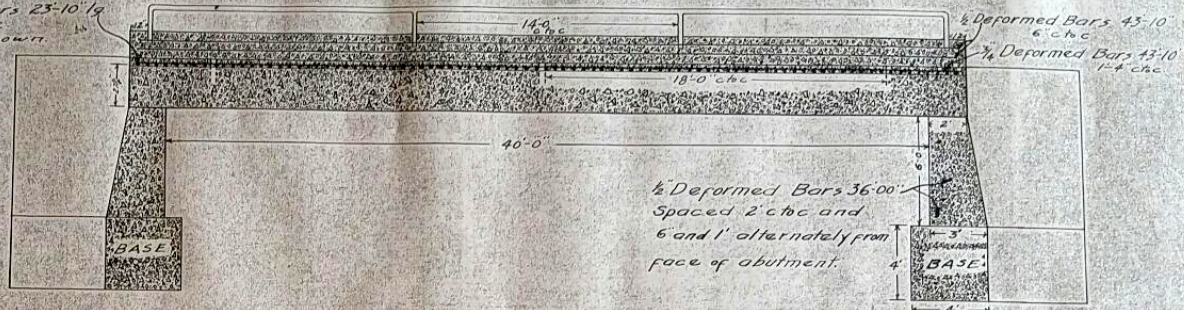 23-10 lg
own.
12"
14-0"
c to c
½ Deformed Bars 43-10
6" c to c
¾ Deformed Bars 43-10
1-4 c to c
18-0" c to c
40'-0"
2'
6-0
½" Deformed Bars 36-00"
Spaced 2' c to c and
6" and 1' alternately from
face of abutment.
3'
4'
BASE
BASE
4'